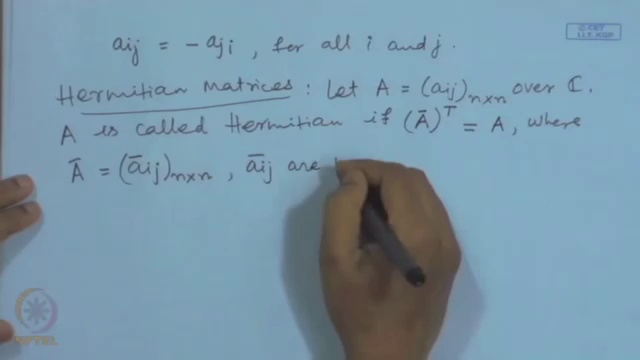 © CET
I.I.T. KGP
aij = - aji, for all i and j.
Hermitian Matrices : Let A = (aij)n×n over ℂ.
A is called Hermitian if (Ā)ᵀ = A, where
Ā = (āij)n×n, āij are
NPTEL